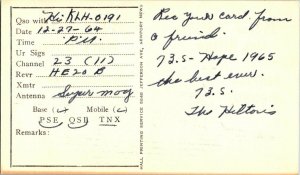 Qso with Hi: KLH-0191
Date 12-27-64
Time P.M.
Ur Sigs
Channel 23 (11)
Recvr HE20 B
Xmtr
Antenna Super mag
Base (✓) Mobile (✓)
PSE QSB TNX
Remarks:
HALL PRINTING SERVICE 9242 JEFFERSON AVE., NEWPORT NEWS
Rec your card. from
a friend.
73.S - Hope 1965
the best ever.
73.S.
The Hiltons